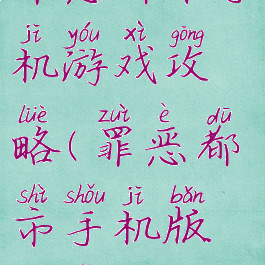 jī yóu xì gōng
机游戏攻
lüè zuì è dū
略(罪恶都
shì shǒu jī bǎn
市手机版